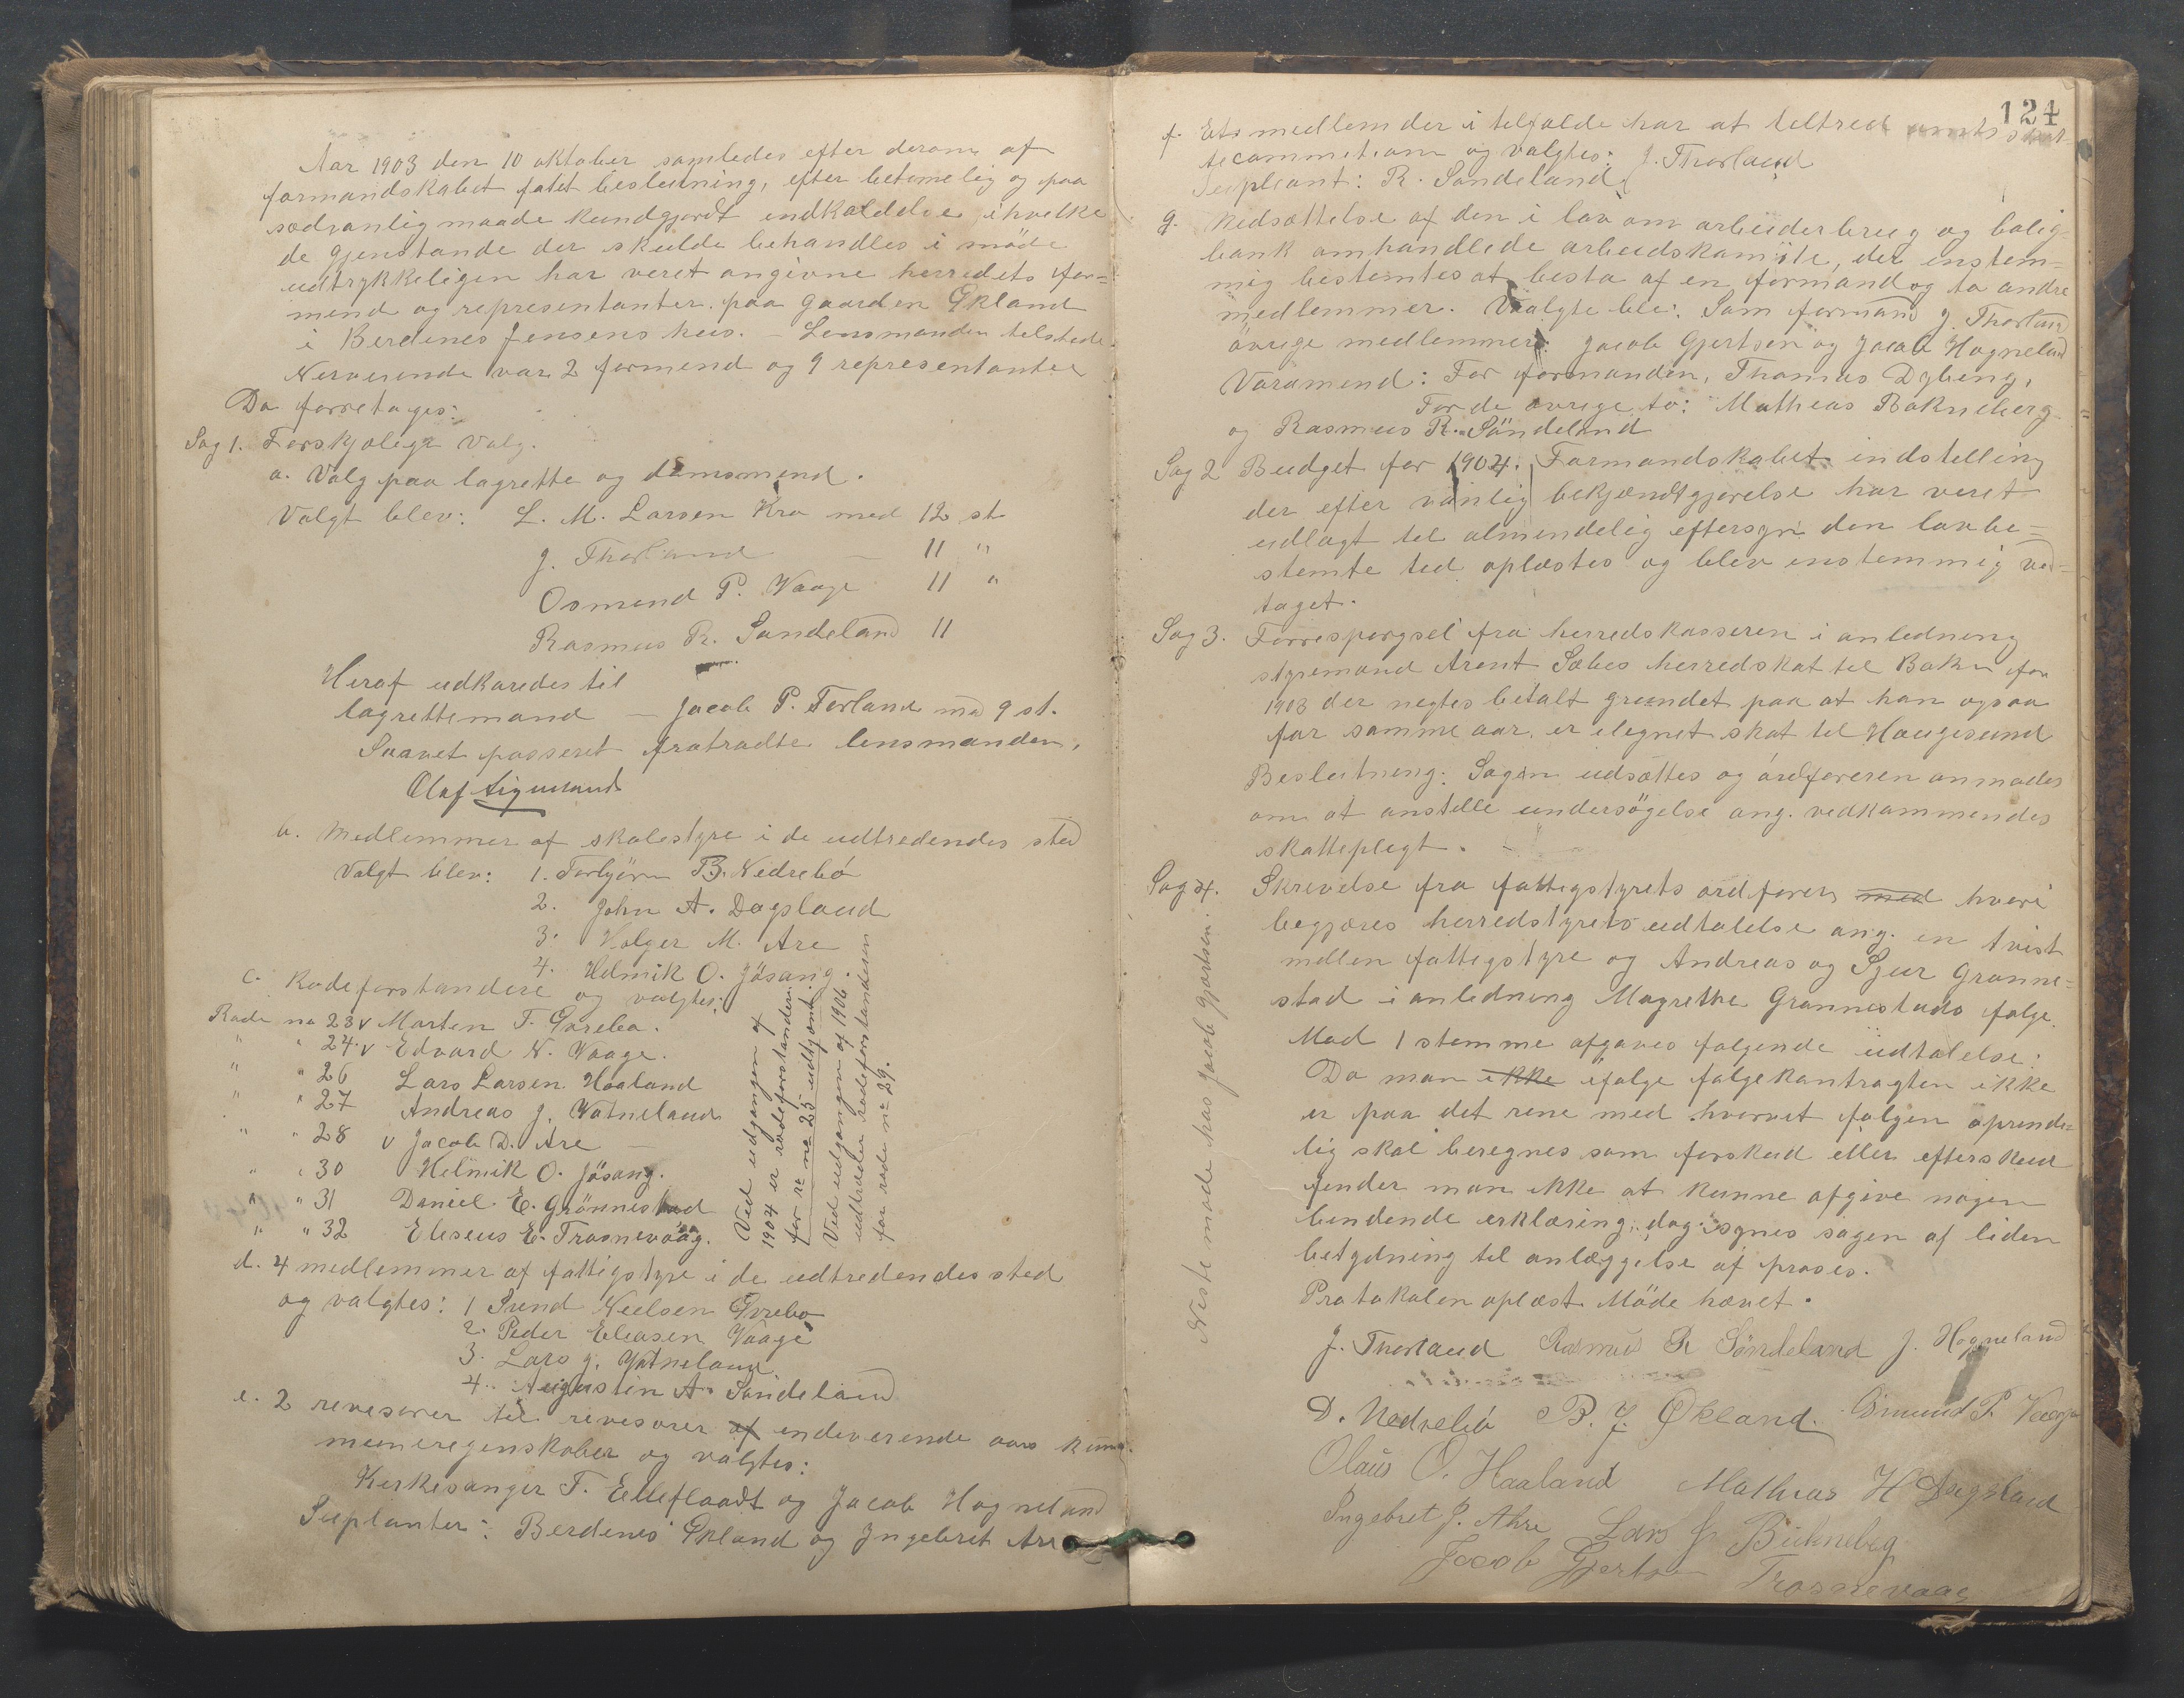 Aar 1903 den 10 oktober samledes efter derom af
formandskabet fatet beslutning, efter betimelig og paa
sædvanlig maade kundgjordt indkaldelse, i hvilke
de gjenstande der skulde behandles i møde
udtrykkeligen har veret angivne herredets for=
mend og representanter paa gaarden Økland
i Berdenes Jensens hus. – Lensmanden tilstede.
Nerverende var 2 formend og 9 representanter
Da forretoges:
Sag 1. Forskjelige valg.
a. Valg paa lagrette og domsmend.
Valgt blev: L. M. Larsen Kro med 12 st
J. Thorland — 11 "
Osmund P. Vaage 11 "
Rasmus R. Sandeland 11
Heraf udkaredes til
lagrettemand — Jacob P. Torland med 9 st.
Saavet passeret fratradte lensmanden,
Olaf Sigmund
b. Medlemmer af skolestyre i de udtredendes sted
Valgt blev: 1. Torbjörn B. Nedrebö
2. John A. Dagsland
3. Holger M. Are
4. Helmik O. Jösang.
c. Rodeforstandere og valgtes:
Rode no 23 v Morten T. Gorebo.
" " 24 v Edvard N. Vaage.
" " 26 Lars Larsen Haaland
" " 27 Andreas J. Vatneland
" " 28 v Jacob D. Are —
" " 30 Helmik O. Jösang.
" " 31 Daniel E. Grönnestad
" " 32 Eliseus E. Trosnevaag.
Ved udgangen af
1904 er rodeforstandere
for no 25 udtjent.
Ved udgangen af 1906
udtræder rodeforstanderen
for rode no 29.
d. 4 medlemmer af fattigstyre i de udtredendes sted
og valgtes: 1 Svend Nielsen Gorebo
2. Peder Eliasen Vaage
3. Lars J. Vatneland
4. Augustin A. Sandeland
e. 2 revisorer til revisorer af indeverende aars kom=
muneregenskaber og valgtes:
Kirkesanger T. Elleflaadt og Jacob Hogneland
Suplanter: Berdenes Økland og Ingebret Are
124
f. Et medlem der i telfalde har at teltred amtsskat-
tecommetionn og valgtes: J. Thorland
Supleant: R. Sandeland
g. Nedsættelse af den i lov om arbeiderbrug og bolig=
bank omhandlede arbeidskomite, der enstem=
mig bestemtes at besta af en formand og to andre
medlemmer. Valgte ble: Som formand J. Thorland
øvrige medlemmer: Jacob Gjertsen og Jacob Hogneland
Varamend: For formanden, Thomas Dybeng,
For de øvrige to: Mathias Bokneberg
og Rasmus R. Söndeland
Sag 2 Budget for 1904. Formandskabet indstelling
der efter vanlig bekjendtgjorelse har veret
udlagt til almendelig eftersyn den lovbe=
stemte tid oplæstes og blev enstemmig ved=
taget.
Sag 3. Forresporgsel fra herredskasseren i anledning
styremand Arent Sæbes herredskat til Bokn for
1903 der negtes betalt grundet paa at han ogsaa
for samme aar, er ilegnet skat til Haugesund
Beslutning: Sagen udsættes og ordforeren anmodes
om at anstille undersögelse ang. vedkommendes
skattepligt. –
Sag 4. Skrivelse fra fattigstyrets ordforer med hvori
begjæres herredstyrets udtalelse ang. en tvist
mellen fattigstyre og Andreas og Sjur Gronne=
stad i anledning Magrethe Gronnestads folge.
Mod 1 stemme afgaves folgende udtalelse:
Da man ikke ifolge folgekontragten ikke
er paa det rene med hvorvet folgen oprinde=
lig skal beregnes som forskud eller efterskud
fender man ikke at kunne afgive nogen
bendende erklæring, dog synes sagen af liden
betydning til anlæggelse af proses.
Protokolen oplæst. Möde hævet.
Neste møde hos Jacob Gjertsen.
J. Thorland Rasmus R Söndeland J. Hogneland
D. Nedrebö B. J. Økland. Osmund P. Vaage
Olaus O. Haaland Mathias H Dagsland
Ingebret J. Ahre Lars J Bokneberg
Jacob Gjertsen Trosnevaag